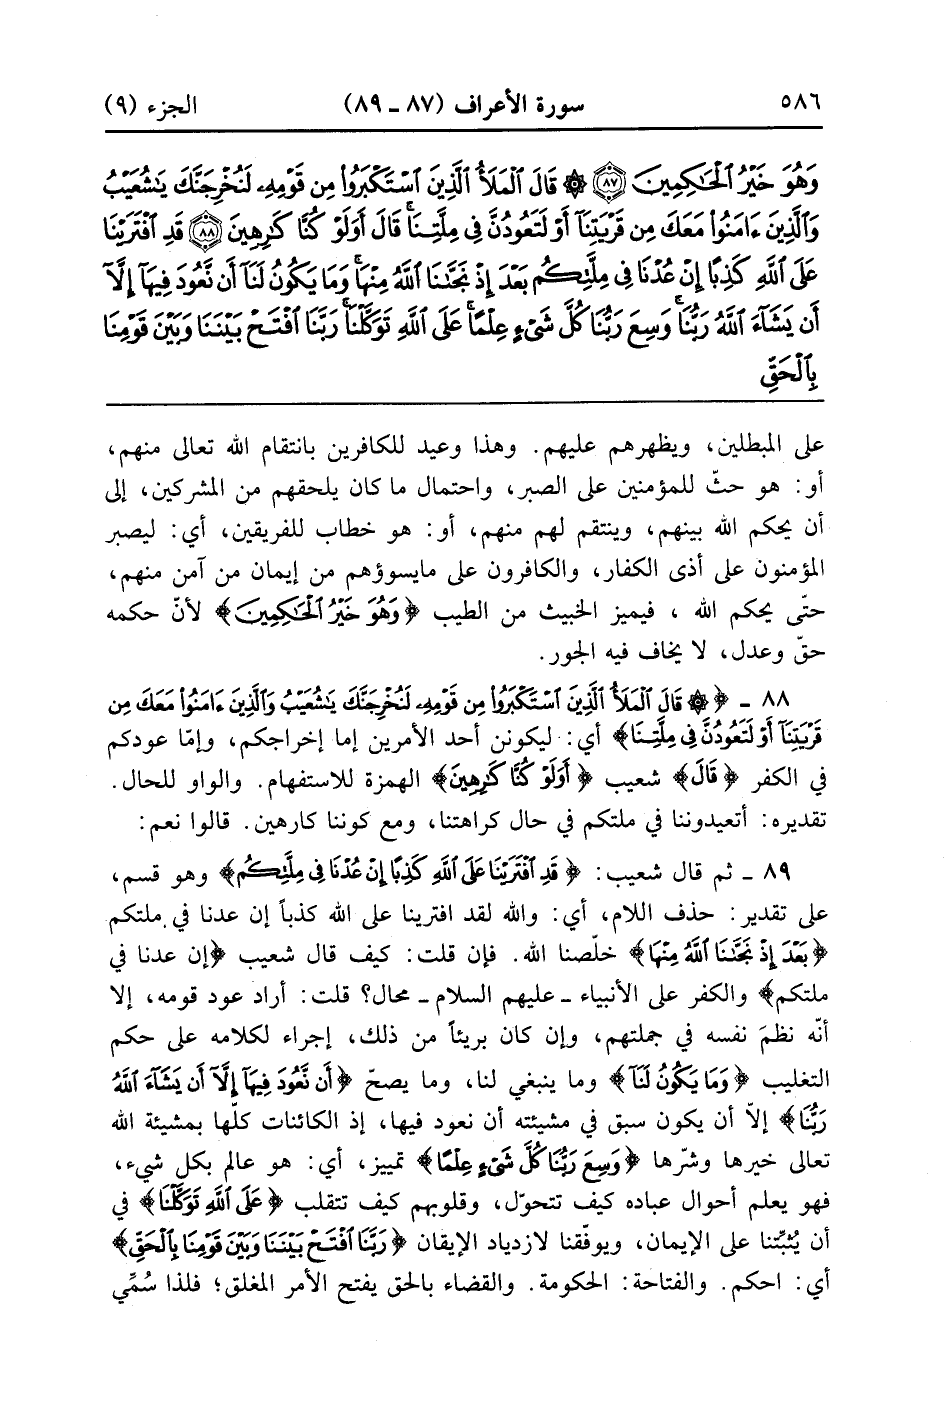 ٥٨٦ سورة الأعراف (٨٧ ـ ٨٩) الجزء (٩)
وَهُوَ خَيْرُ ٱلْحَٰكِمِينَ ٨٧ ۞ قَالَ ٱلْمَلَأُ ٱلَّذِينَ ٱسْتَكْبَرُوا۟ مِن قَوْمِهِۦ لَنُخْرِجَنَّكَ يَٰشُعَيْبُ
وَٱلَّذِينَ ءَامَنُوا۟ مَعَكَ مِن قَرْيَتِنَآ أَوْ لَتَعُودُنَّ فِى مِلَّتِنَا ۚ قَالَ أَوَلَوْ كُنَّا كَٰرِهِينَ ٨٨ قَدِ ٱفْتَرَيْنَا
عَلَى ٱللَّهِ كَذِبًا إِنْ عُدْنَا فِى مِلَّتِكُم بَعْدَ إِذْ نَجَّىٰنَا ٱللَّهُ مِنْهَا ۚ وَمَا يَكُونُ لَنَآ أَن نَّعُودَ فِيهَآ إِلَّآ
أَن يَشَآءَ ٱللَّهُ رَبُّنَا ۚ وَسِعَ رَبُّنَا كُلَّ شَىْءٍ عِلْمًا ۚ عَلَى ٱللَّهِ تَوَكَّلْنَا ۚ رَبَّنَا ٱفْتَحْ بَيْنَنَا وَبَيْنَ قَوْمِنَا
بِٱلْحَقِّ
على المبطلين، ويظهرهم عليهم. وهذا وعيد للكافرين بانتقام الله تعالى منهم،
أو: هو حثّ للمؤمنين على الصبر، واحتمال ما كان يلحقهم من المشركين، إلى
أن يحكم الله بينهم، وينتقم لهم منهم، أو: هو خطاب للفريقين، أي: ليصبر
المؤمنون على أذى الكفار، والكافرون على مايسوؤهم من إيمان من آمن منهم،
حتّى يحكم الله ، فيميز الخبيث من الطيب ﴿وَهُوَ خَيْرُ ٱلْحَٰكِمِينَ﴾ لأنّ حكمه
حقّ وعدل، لا يخاف فيه الجور.
٨٨ ـ ﴿۞ قَالَ ٱلْمَلَأُ ٱلَّذِينَ ٱسْتَكْبَرُوا۟ مِن قَوْمِهِۦ لَنُخْرِجَنَّكَ يَٰشُعَيْبُ وَٱلَّذِينَ ءَامَنُوا۟ مَعَكَ مِن
قَرْيَتِنَآ أَوْ لَتَعُودُنَّ فِى مِلَّتِنَا﴾ أي: ليكونن أحد الأمرين إما إخراجكم، وإمّا عودكم
في الكفر ﴿قَالَ﴾ شعيب ﴿أَوَلَوْ كُنَّا كَٰرِهِينَ﴾ الهمزة للاستفهام. والواو للحال.
تقديره: أتعيدوننا في ملتكم في حال كراهتنا، ومع كوننا كارهين. قالوا نعم:
٨٩ ـ ثم قال شعيب: ﴿قَدِ ٱفْتَرَيْنَا عَلَى ٱللَّهِ كَذِبًا إِنْ عُدْنَا فِى مِلَّتِكُم﴾ وهو قسم،
على تقدير: حذف اللام، أي: والله لقد افترينا على الله كذباً إن عدنا في ملتكم
﴿بَعْدَ إِذْ نَجَّىٰنَا ٱللَّهُ مِنْهَا﴾ خلّصنا الله. فإن قلت: كيف قال شعيب ﴿إن عدنا في
ملتكم﴾ والكفر على الأنبياء ـ عليهم السلام ـ محال؟ قلت: أراد عود قومه، إلا
أنّه نظمَ نفسه في جملتهم، وإن كان بريئاً من ذلك، إجراء لكلامه على حكم
التغليب ﴿وَمَا يَكُونُ لَنَآ﴾ وما ينبغي لنا، وما يصحّ ﴿أَن نَّعُودَ فِيهَآ إِلَّآ أَن يَشَآءَ ٱللَّهُ
رَبُّنَا﴾ إلاّ أن يكون سبق في مشيئته أن نعود فيها، إذ الكائنات كلّها بمشيئة الله
تعالى خيرها وشرّها ﴿وَسِعَ رَبُّنَا كُلَّ شَىْءٍ عِلْمًا﴾ تمييز، أي: هو عالم بكل شيء،
فهو يعلم أحوال عباده كيف تتحوّل، وقلوبهم كيف تتقلب ﴿عَلَى ٱللَّهِ تَوَكَّلْنَا﴾ في
أن يُثبِّتنا على الإيمان، ويوفّقنا لازدياد الإيقان ﴿رَبَّنَا ٱفْتَحْ بَيْنَنَا وَبَيْنَ قَوْمِنَا بِٱلْحَقِّ﴾
أي: احكم. والفتاحة: الحكومة. والقضاء بالحق يفتح الأمر المغلق؛ فلذا سُمِّي